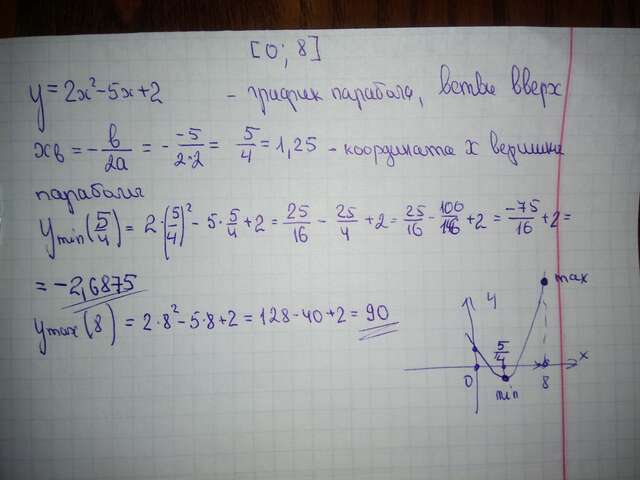 [0; 8]
y = 2x² - 5x + 2 - график парабола, ветви вверх
xв = - b/2a = - -5/2·2 = 5/4 = 1,25 - координата x вершины
параболы
y min (5/4) = 2·(5/4)² - 5·5/4 + 2 = 25/16 - 25/4 + 2 = 25/16 - 100/16 + 2 = -75/16 + 2 =
= -2,6875
y max (8) = 2·8² - 5·8 + 2 = 128 - 40 + 2 = 90
y
max
0
5/4
8
x
min